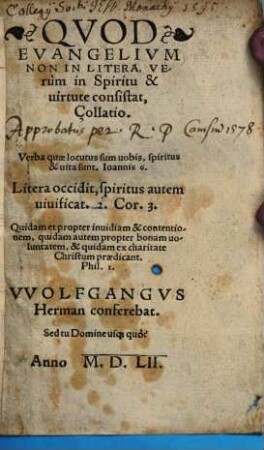 Collegij Soctis Jesu Monachij 1595
QVOD
EVANGELIVM
NON IN LITERA, VE-
rùm in Spiritu &
uirtute consistat,
Collatio.
Approbatus per . R . P 1578
Verba quæ locutus sum uobis, spiritus
& uita sunt. Ioannis 6.
Litera occidit, spiritus autem
uiuificat. 2. Cor. 3.
Quidam et propter inuidiam & contentio-
nem, quidam autem propter bonam uo-
luntatem, & quidam ex charitate
Christum prædicant.
Phil. 1.
VVOLFGANGVS
Herman conferebat.
Sed tu Domine usq; quò?
Anno M. D. LII.